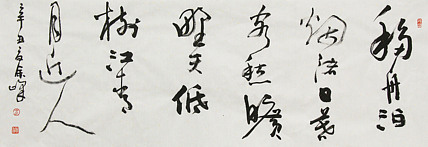 移舟泊
烟渚日暮
客愁曠
野天低
樹江清
月近人
辛丑